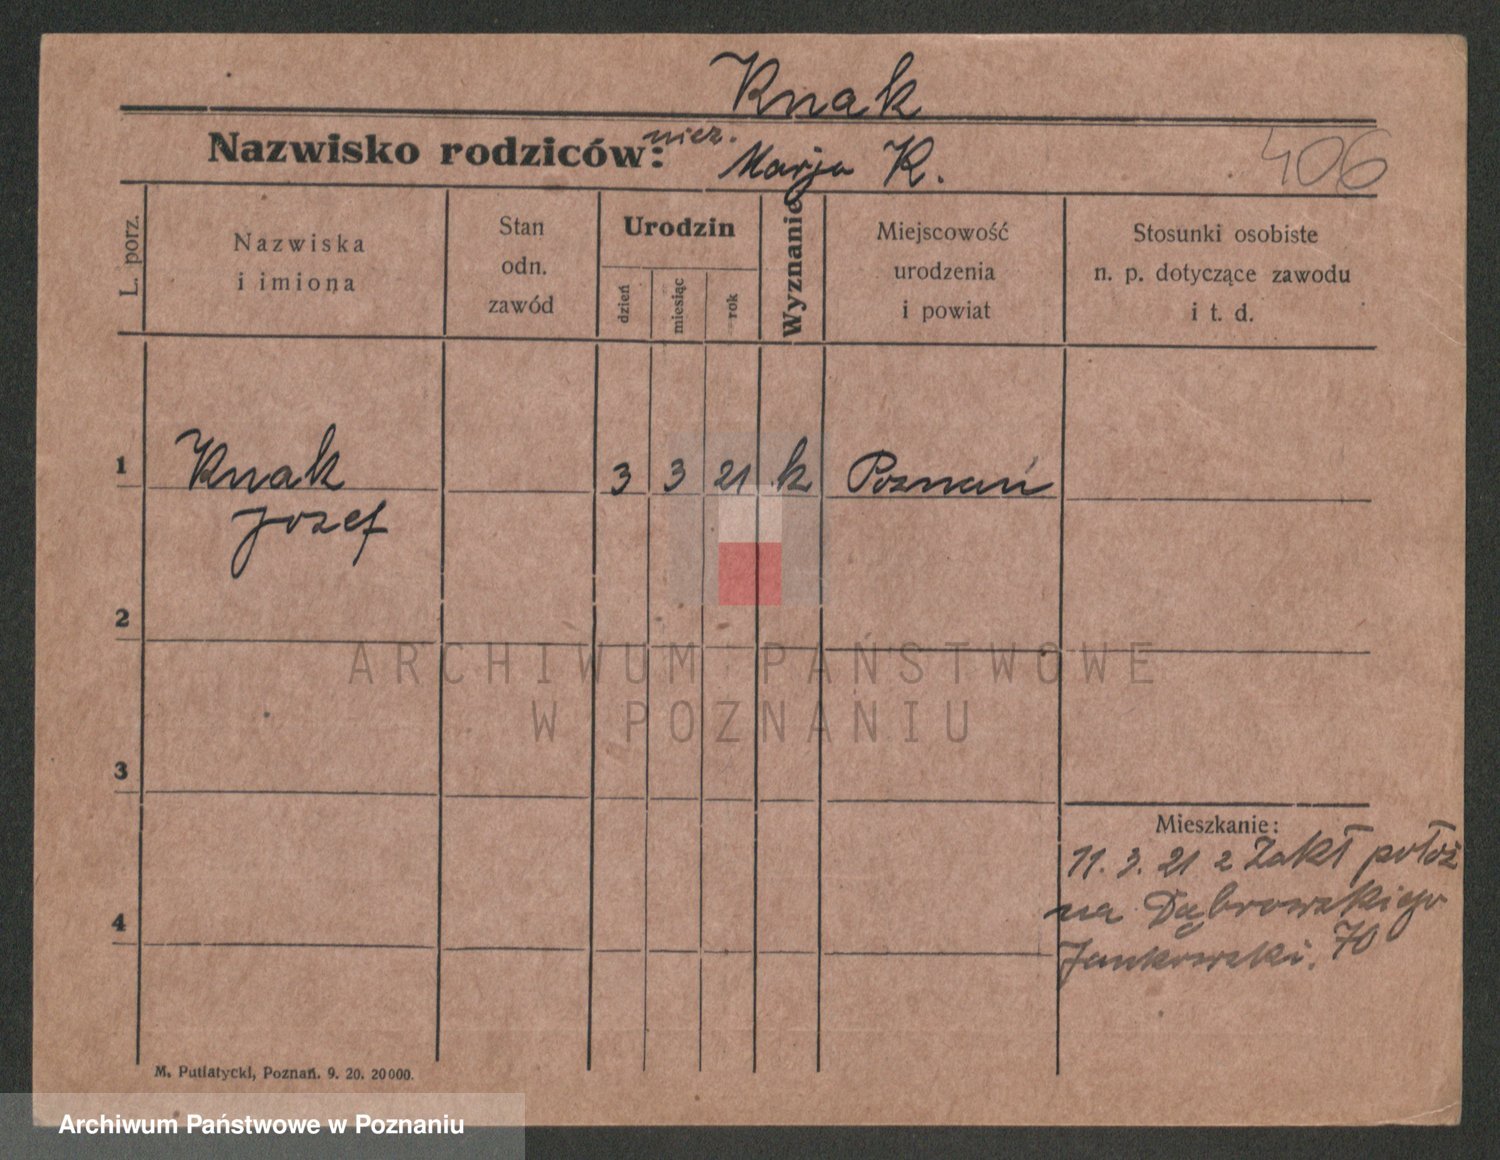 Knak
Nazwisko rodziców: niez.
Marja K.
406
L. porz.
Nazwiska
i imiona
Stan
odn.
zawód
Urodzin
dzień
miesiąc
rok
Wyznanie
Miejscowość
urodzenia
i powiat
Stosunki osobiste
n. p. dotyczące zawodu
i t. d.
1
Knak
Jozef
3 3 21 k Poznań
2
ARCHIWUM PAŃSTWOWE
W POZNANIU
3
4
Mieszkanie:
11. 3. 21 z Zakł położ
na Dąbrowskiego
Jankowski. 70
M. Putiatycki, Poznań. 9. 20. 20000.
Archiwum Państwowe w Poznaniu